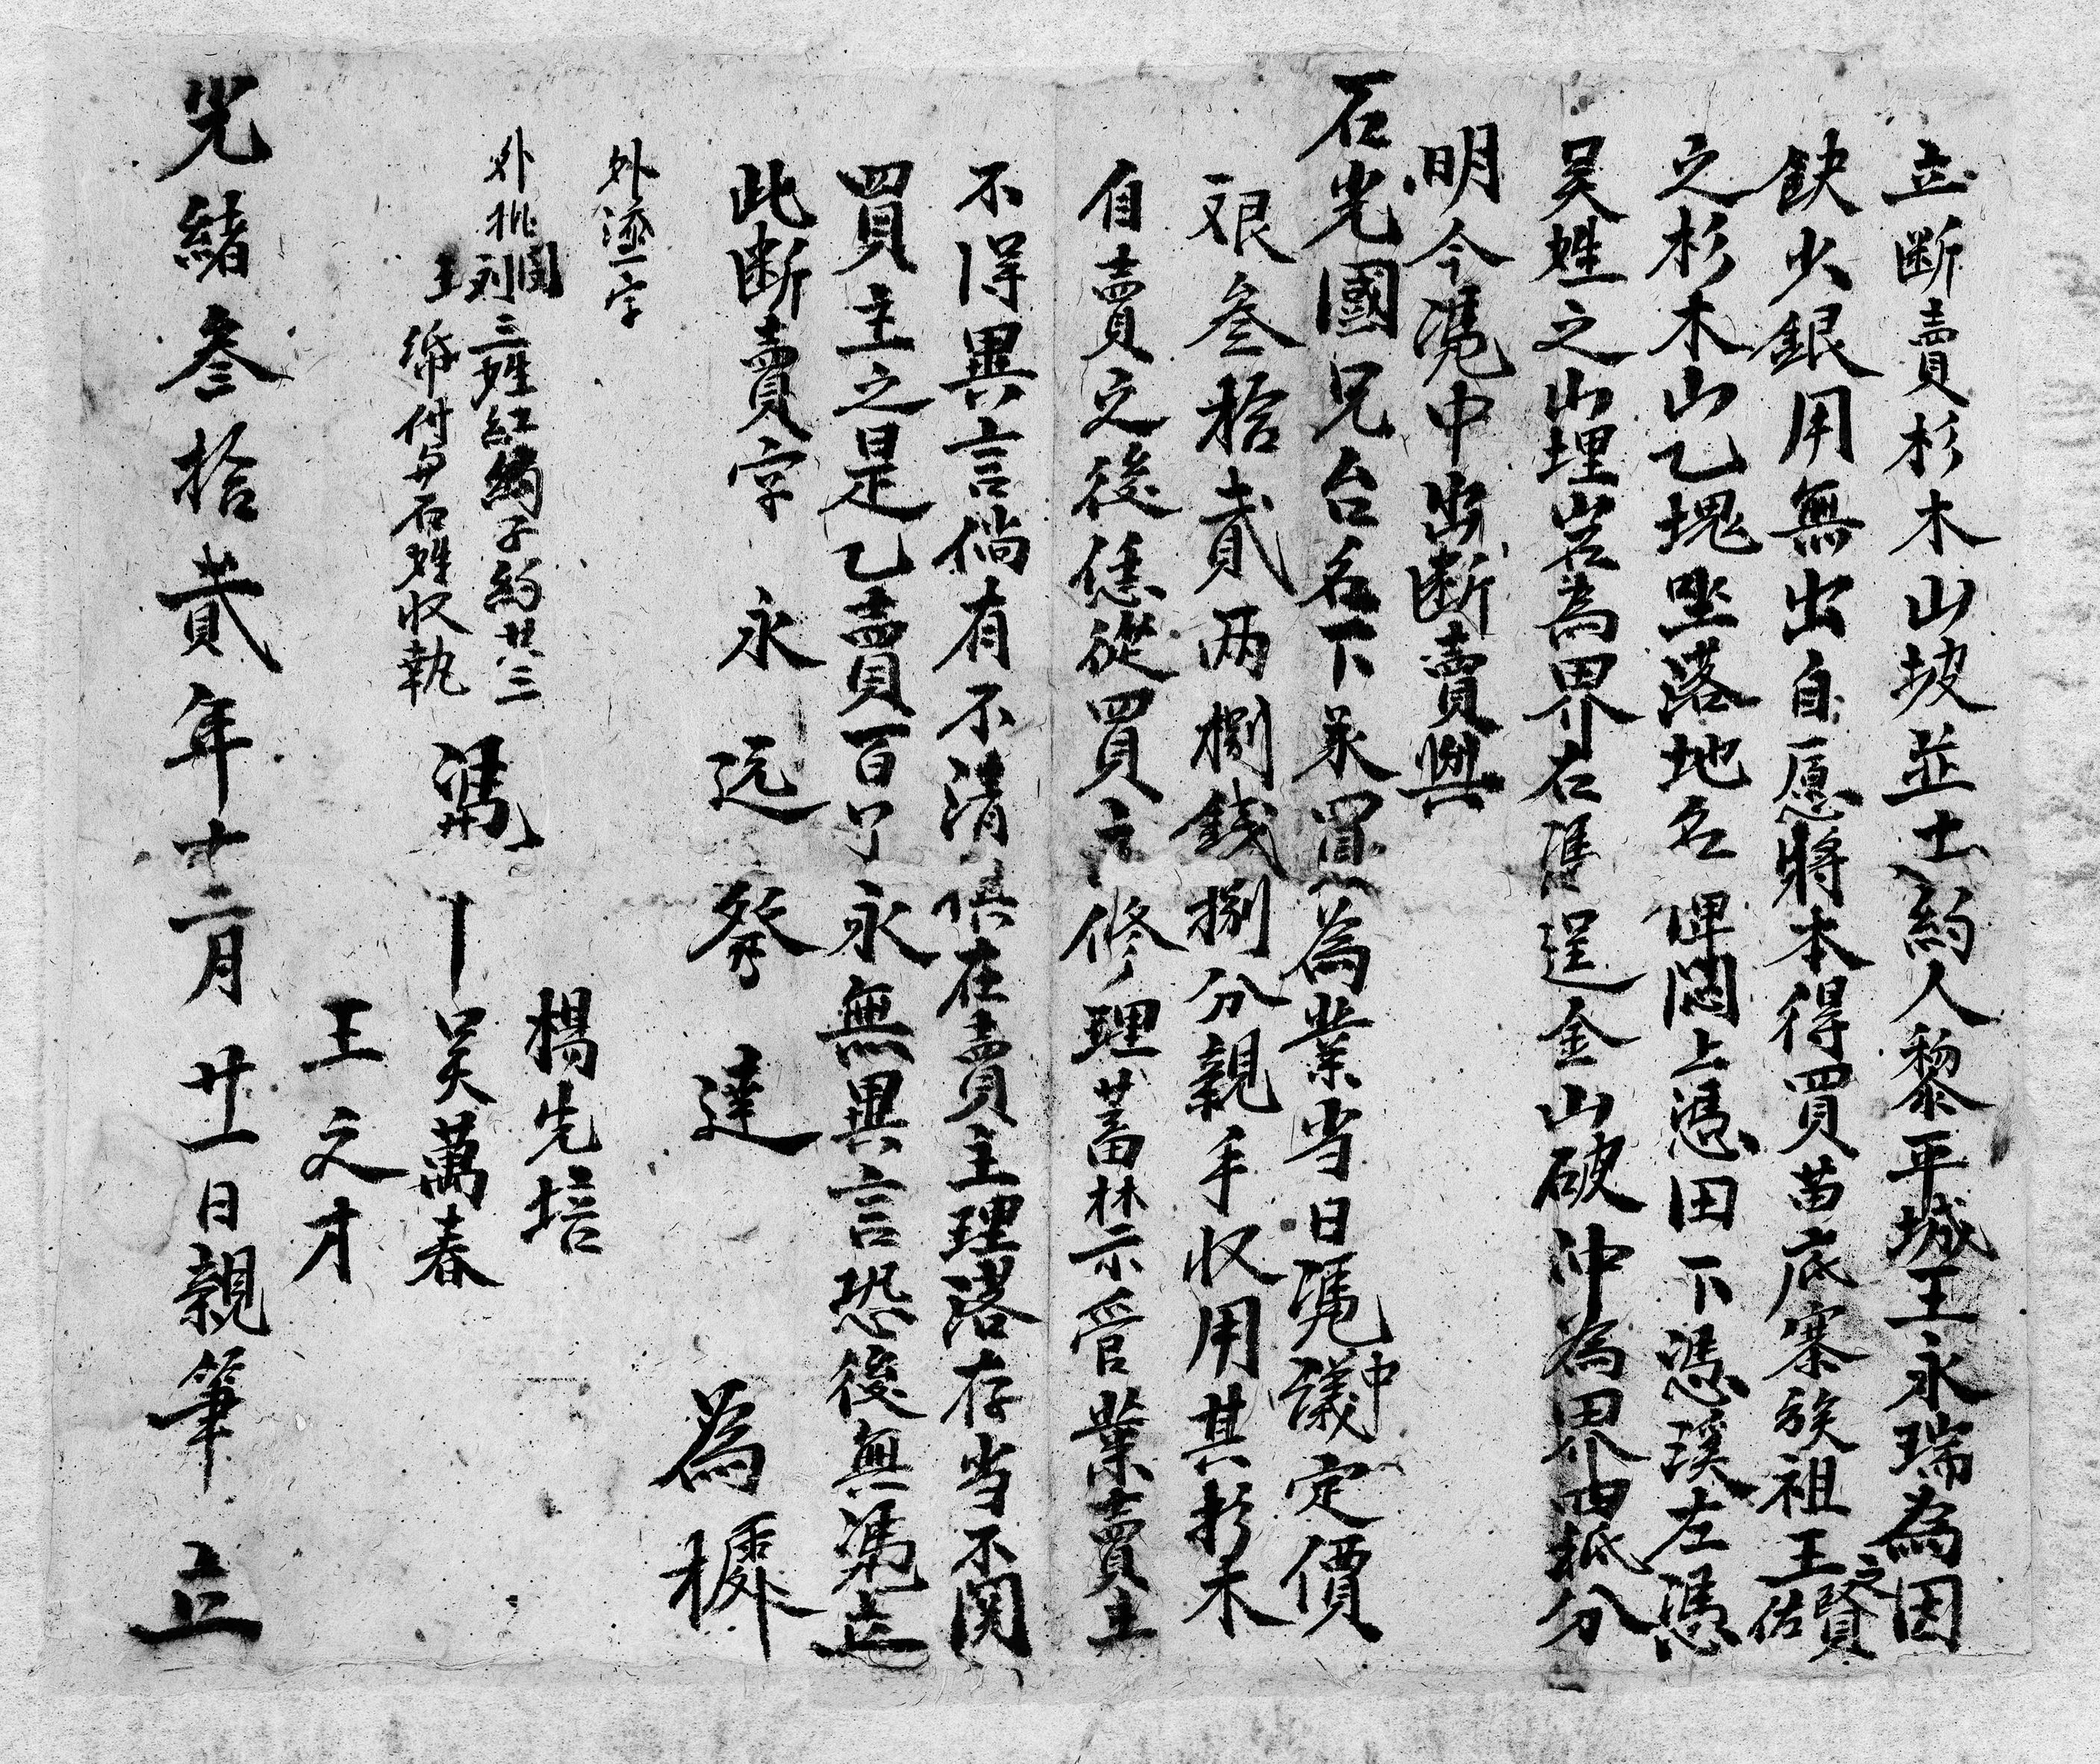 立断賣杉木山坡並土約人黎平城王永瑞為因
缺少銀用無出自愿將本得買苗底寨族祖王之賢佑
之杉木山乙塊坐落地名俾閙上憑田下憑溪左憑
吴姓之山埋岩為界右馮逞金山破冲為界四抵分
明今馮中出断賣與
石光國兄台名下承買為業当日馮中議定價
艮叁拾貳两捌錢捌分親手收用其杉木
自賣之後恁從買主修理蓄林示管業賣主
不得異言倘有不清俱在賣主理落存当不関
買主之是乙賣百了永無異言恐後無馮立
此断賣字永远發達為據
外添一字
外批閙刘王三姓紅綢子約共三
節付與石姓收執
楊先培
馮中吴萬春
王之才
光緒叁拾貳年十二月廿一日親筆立